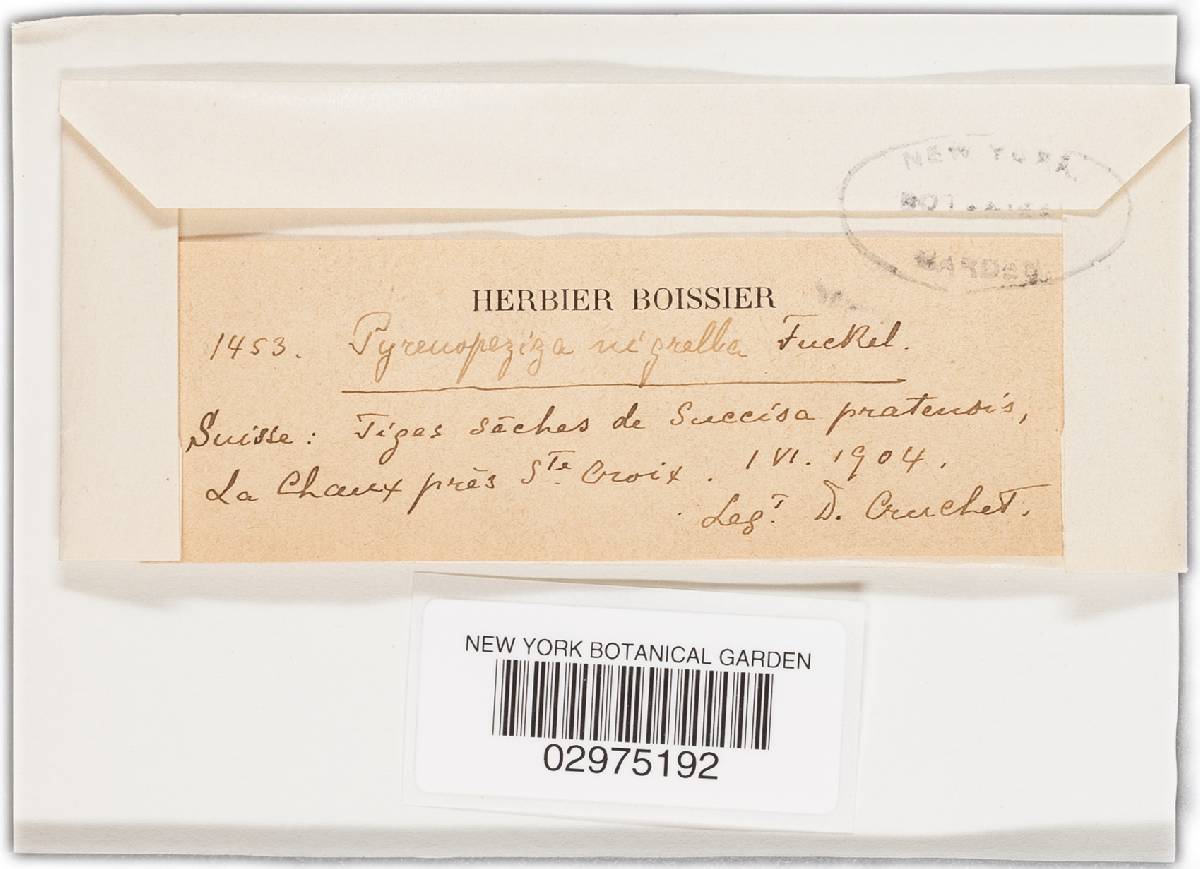 NEW YORK
BOTANICAL
GARDEN
HERBIER BOISSIER
1453. Pyrenopeziza nigrella Fuckel.
Suisse: Tiges sèches de Succisa pratensis,
La Chaux près Ste. Croix. 1 VI. 1904.
Legt. D. Cruchet.
NEW YORK BOTANICAL GARDEN
02975192